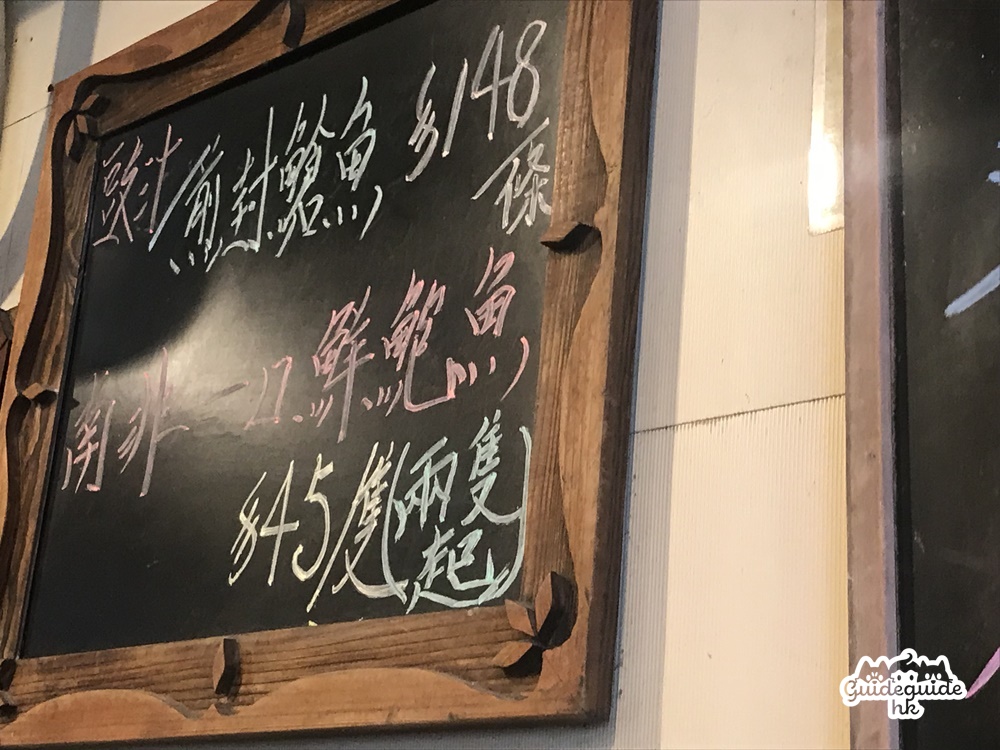 豉汁煎封鱠魚 $148
條
南非一口鮮鮑魚
$45/隻(兩隻
起)
Guideguide
hk